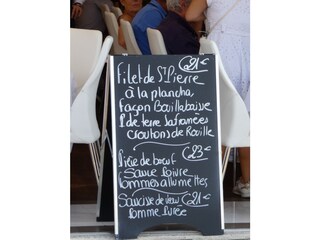 21€
Filet de St Pierre
à la plancha,
façon Bouillabaisse
P de terre safranées
croutons de Rouille
23€
Pièce de bœuf
Sauce Poivre
Pommes allumettes
Saucisse de veau 21€
Pomme Purée